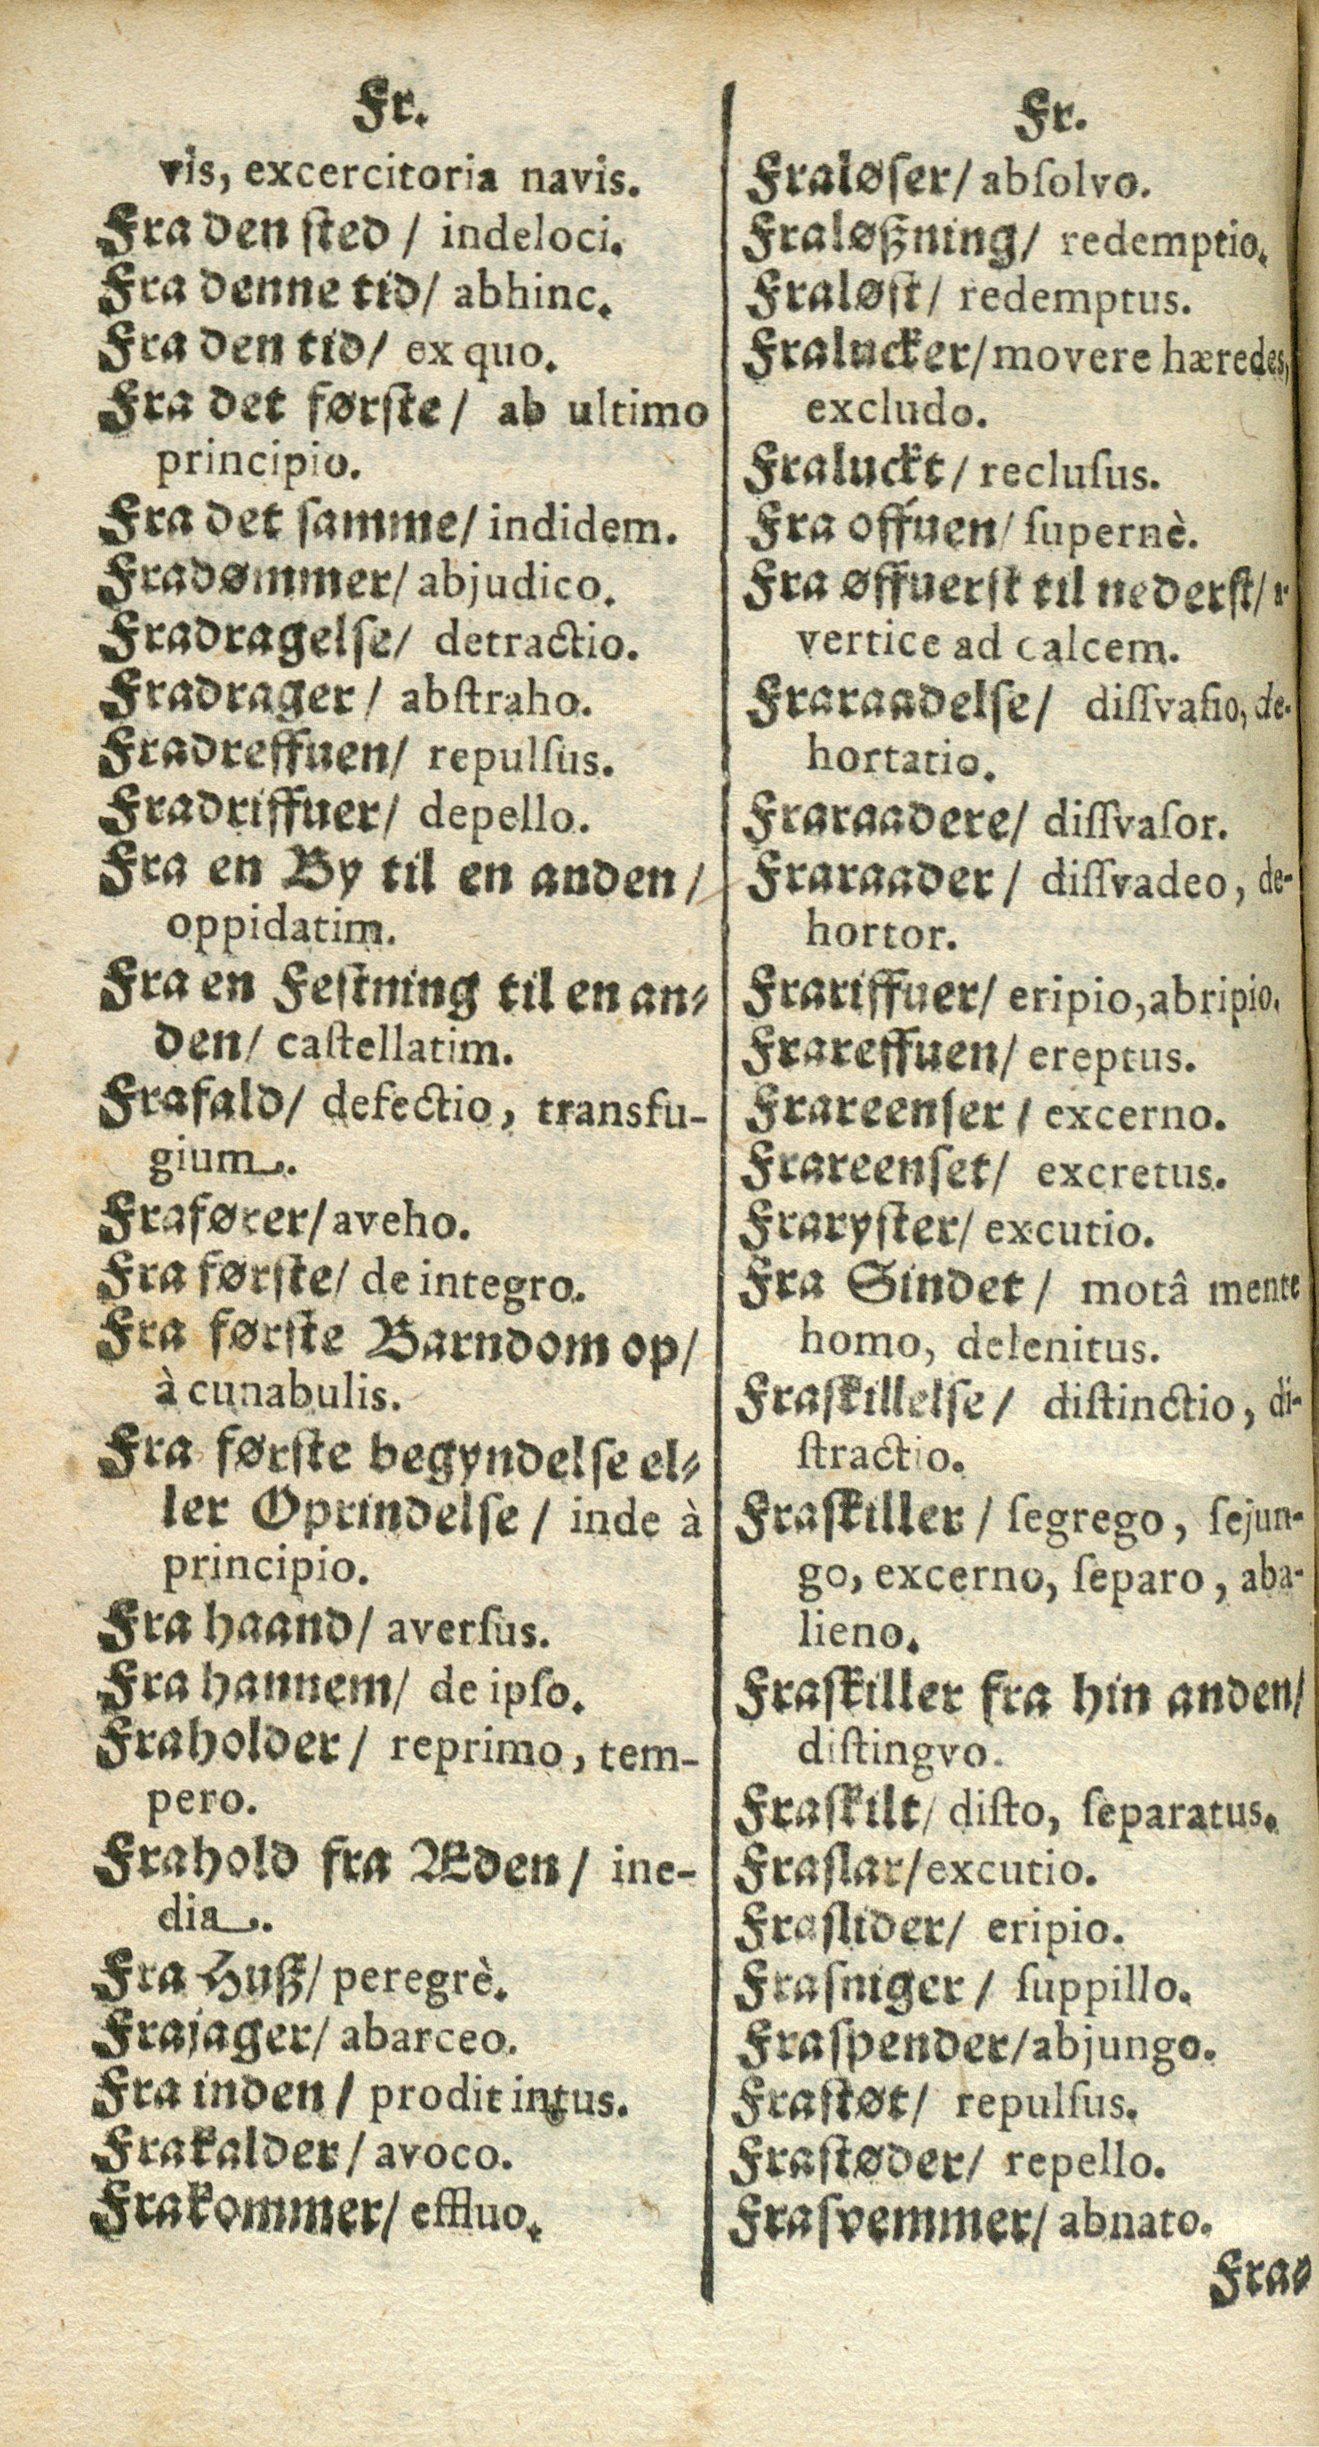 Fr.
vis, excercitoria navis.
Fra den sted / indeloci.
Fra denne tid/ abhinc.
Fra den tid/ ex quo.
Fra det første/ ab ultimo
principio.
Fra det samme/ indidem.
Fradømmer/ abjudico.
Fradragelse/ detractio.
Fradrager/ abſtraho.
Fradreffuen/ repulſus.
Fradriffuer/ depello.
Fra en By til en anden/
oppidatim.
Fra en Festning til en an-
den/ caſtellatim.
Frafald/ defectio, transfu-
gium.
Frafører/ aveho.
Fra første/ de integro.
Fra første Barndom op/
à cunabulis.
Fra første begyndelse el-
ler Oprindelse/ inde à
principio.
Fra haand/ averſus.
Fra hannem/ de ipſo.
Fraholder/ reprimo, tem-
pero.
Frahold fra Æden/ ine-
dia.
Fra Huß/ peregrè.
Frajager/ abarceo.
Fra inden/ prodit intus.
Frakalder/ avoco.
Frakommer/ effluo.
Fr.
Fraløser/ abſolvo.
Fraløßning/ redemptio.
Fraløst/ redemptus.
Fralucker/ movere hæredes,
excludo.
Fraluckt/ recluſus.
Fra offuen/ ſupernè.
Fra øffuerst til nederst/
vertice ad calcem.
Fraraadelse/ diſſvaſio, de-
hortatio.
Fraraadere/ diſſvaſor.
Fraraader/ diſſvadeo, de-
hortor.
Frariffuer/ eripio, abripio.
Frareffuen/ ereptus.
Frareenser/ excerno.
Frareenset/ excretus.
Fraryster/ excutio.
Fra Sindet/ motâ mente
homo, delenitus.
Fraskillelse/ diſtinctio, di-
ſtractio.
Fraskiller/ ſegrego, ſejun-
go, excerno, ſeparo, aba-
lieno.
Fraskiller fra hin anden/
diſtingvo.
Fraskilt/ diſto, ſeparatus.
Fraslar/ excutio.
Fraslider/ eripio.
Frasniger/ ſuppillo.
Fraspender/ abjungo.
Frastøt/ repulſus.
Frastøder/ repello.
Frasvemmer/ abnato.
Fra-